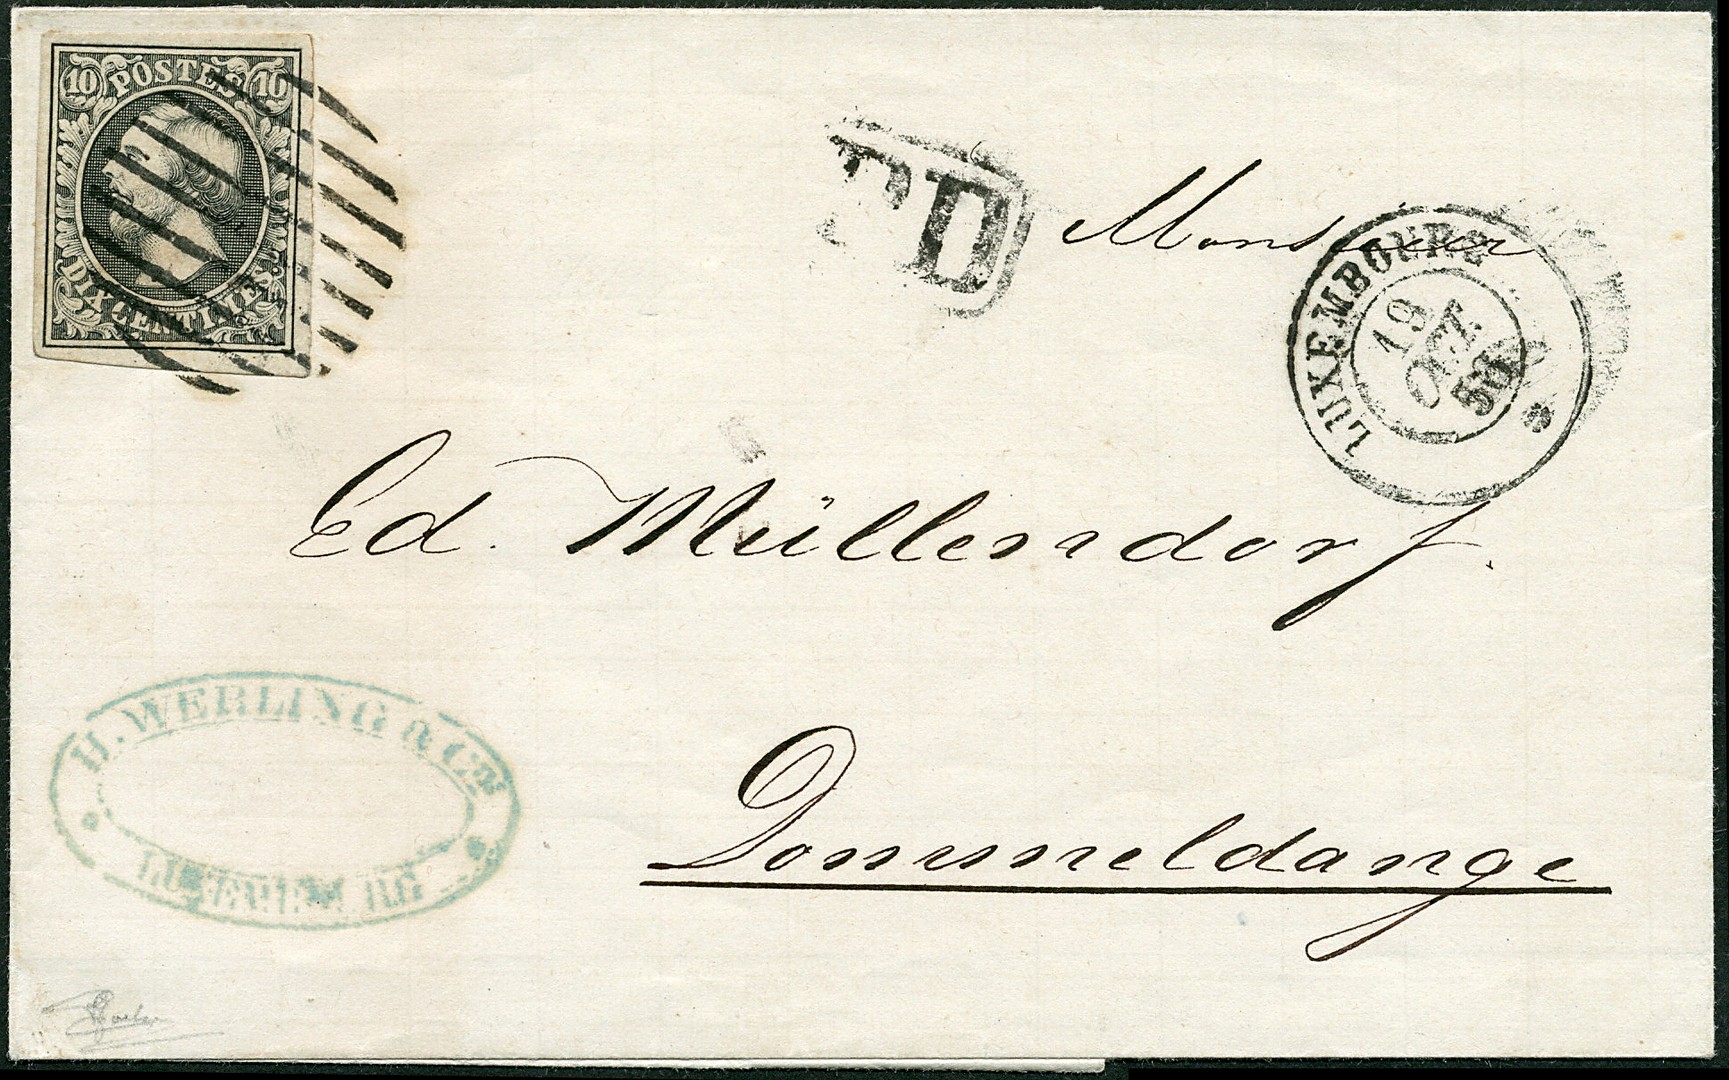 10 POSTES 10
DIX CENTIMES.
PD
LUXEMBOURG
19
OCT
Monsieur
Ed. Müllendorf.
Dommeldange
H. WERLING & CIE
LUXEMBURG